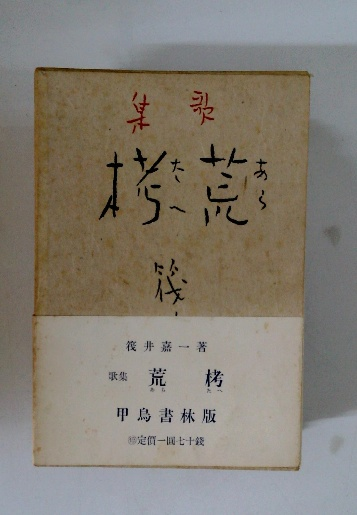 歌集
荒栲
あらたへ
筏
筏井嘉一著
歌集 荒栲
あらたへ
甲鳥書林版
定價一圓七十錢